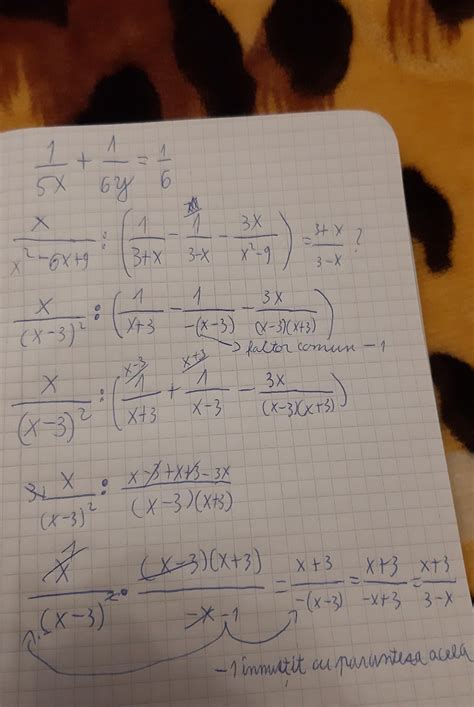 1/5x + 1/6y = 1/6
x/(x²-6x+9) : (1/(3+x) - 1/(3-x) - 3x/(x²-9)) = (3+x)/(3-x) ?
x/(x-3)² : (1/(x+3) - 1/(-(x-3)) - 3x/((x-3)(x+3)))
→ factor comun -1
x/(x-3)² : (x-3) 1/(x+3) + (x+3) 1/(x-3) - 3x/((x-3)(x+3))
x/(x-3)² : (x-3+x+3-3x)/((x-3)(x+3))
x/(x-3)² · ((x-3)(x+3))/(-x -1) = (x+3)/(-(x-3)) = (x+3)/(-x+3) = (x+3)/(3-x)
-1 înmulțit cu paranteza aceea